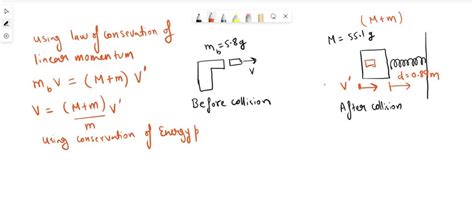 using law of consevation of
linear momentum
m_b V = (M+m) V'
V = (M+m) V'
m
using conservation of Energy p
m_b = 5.8 g
V
Before collision
(M+m)
M = 55.1 g
V'
d = 0.85 m
After collision